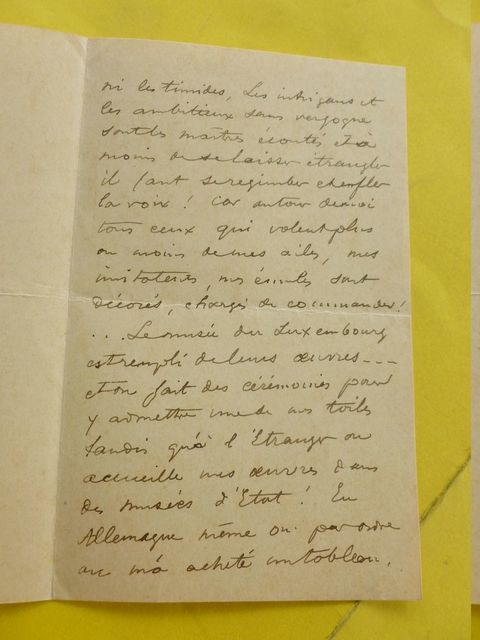 ni les timides, Les intrigans et
les ambitieux sans vergogne
sont les maîtres écoutés et à
moins de se laisser étrangler
il faut se regimber et enfler
la voix ! Car autour de moi
tous ceux qui volent plus
ou moins de mes ailes, mes
imitateurs, mes émules sont
décorés, chargés de commandes !
... Le musée du Luxembourg
est rempli de leurs œuvres ---
et on fait des cérémonies pour
y admettre une de nos toiles
tandis qu'à l'Etranger on
accueille mes œuvres dans
des musées d'Etat ! En
Allemagne même on
on m'a acheté un tableau.